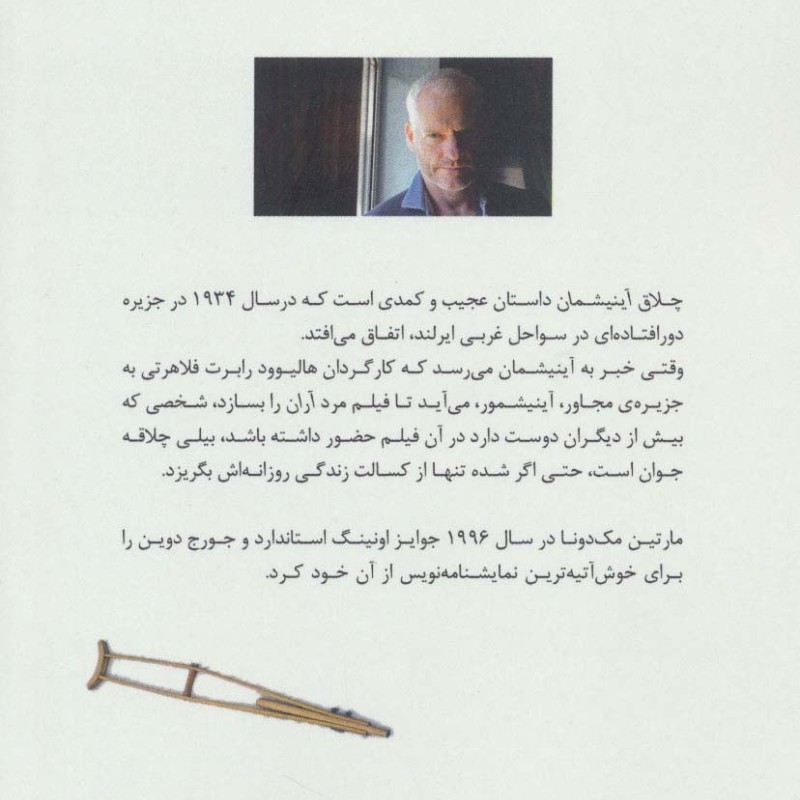 چلاق آینیشمان داستان عجیب و کمدی است که درسال ۱۹۳۴ در جزیره
دورافتاده‌ای در سواحل غربی ایرلند، اتفاق می‌افتد.
وقتی خبر به آینیشمان می‌رسد که کارگردان هالیوود رابرت فلاهرتی به
جزیره‌ی مجاور، آینیشمور، می‌آید تا فیلم مرد آران را بسازد، شخصی که
بیش از دیگران دوست دارد در آن فیلم حضور داشته باشد، بیلی چلاقه
جوان است، حتی اگر شده تنها از کسالت زندگی روزانه‌اش بگریزد.
مارتین مک‌دونا در سال ۱۹۹۶ جوایز اونینگ استاندارد و جورج دوین را
برای خوش‌آتیه‌ترین نمایشنامه‌نویس از آن خود کرد.